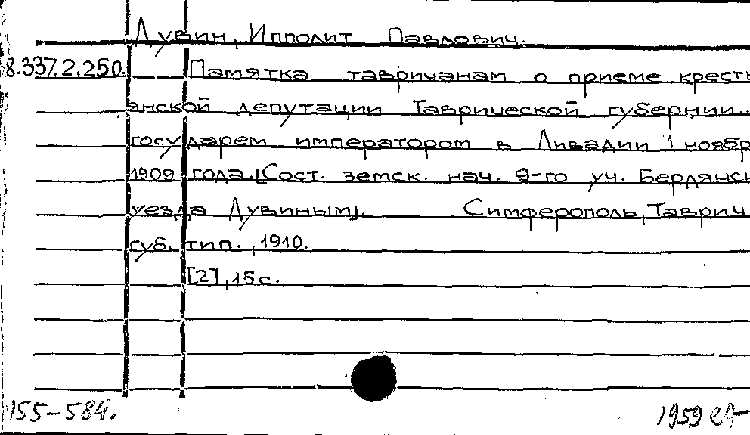 Лувин, Ипполит Павлович.
8.337.2.250. Памятка тавричанам о приеме кресть
янской депутации Таврической губернии..
государем императором в Ливадии 1 ноябр
1909 года.[Сост. земск. нач. 9-го уч. Бердянск
уезда Лувиным]. Симферополь, Таврич.
губ. тип., 1910.
[2], 15 с.
155-584. 1959